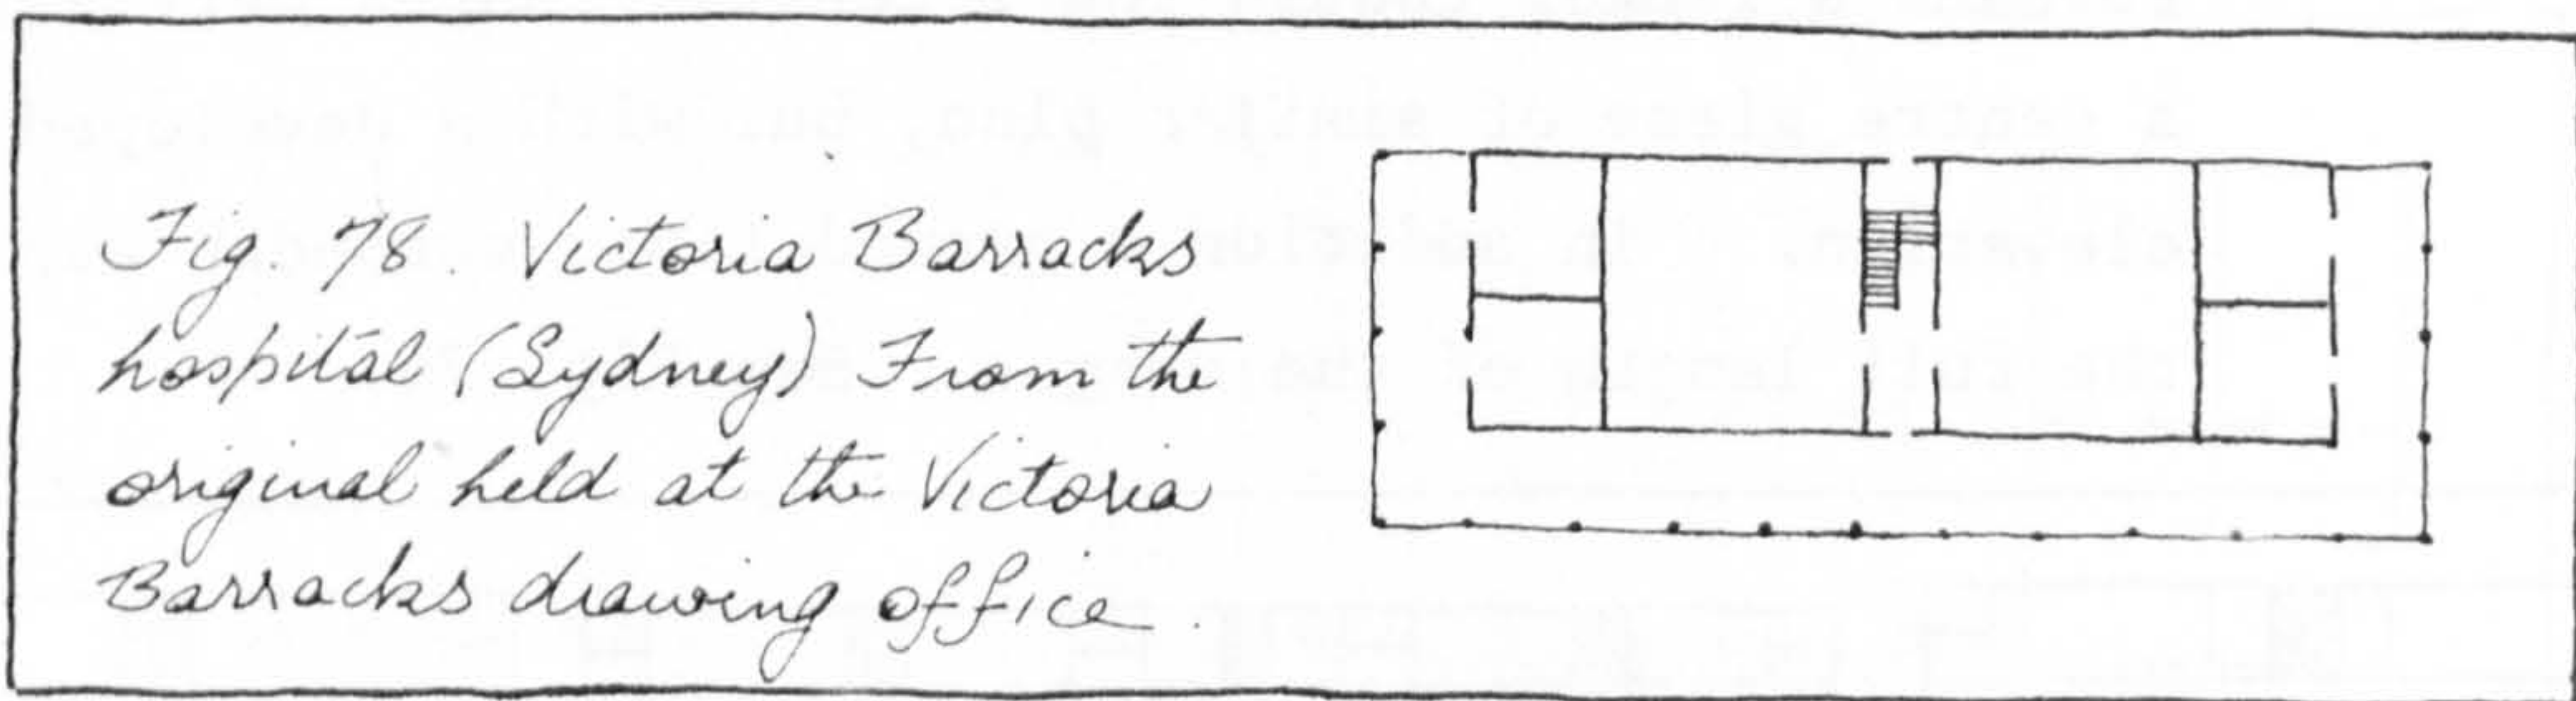 Fig. 78. Victoria Barracks
hospital (Sydney) From the
original held at the Victoria
Barracks drawing office.